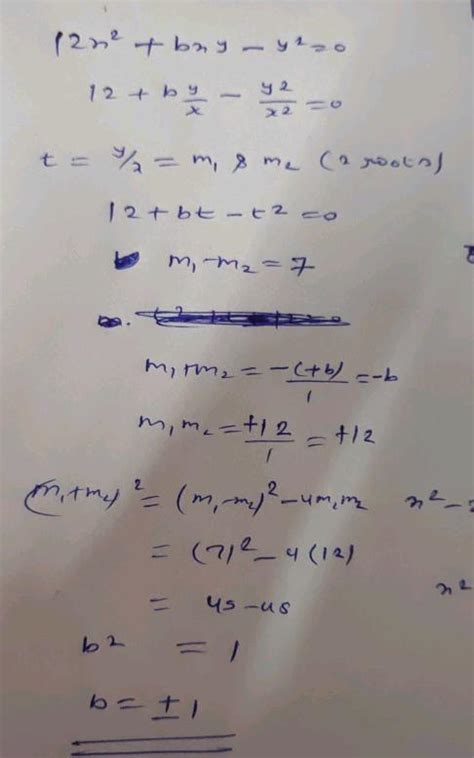 12x² + bxy - y² = 0
12 + b y/x - y²/x² = 0
t = y/x = m₁ & m₂ (2 roots)
12 + bt - t² = 0
m₁ - m₂ = 7
m₁ + m₂ = -(+b)/1 = -b
m₁ m₂ = +12/1 = +12
(m₁ + m₂)² = (m₁ - m₂)² - 4m₁m₂
x² -
= (7)² - 4(12)
x²
= 49 - 48
b² = 1
b = ± 1